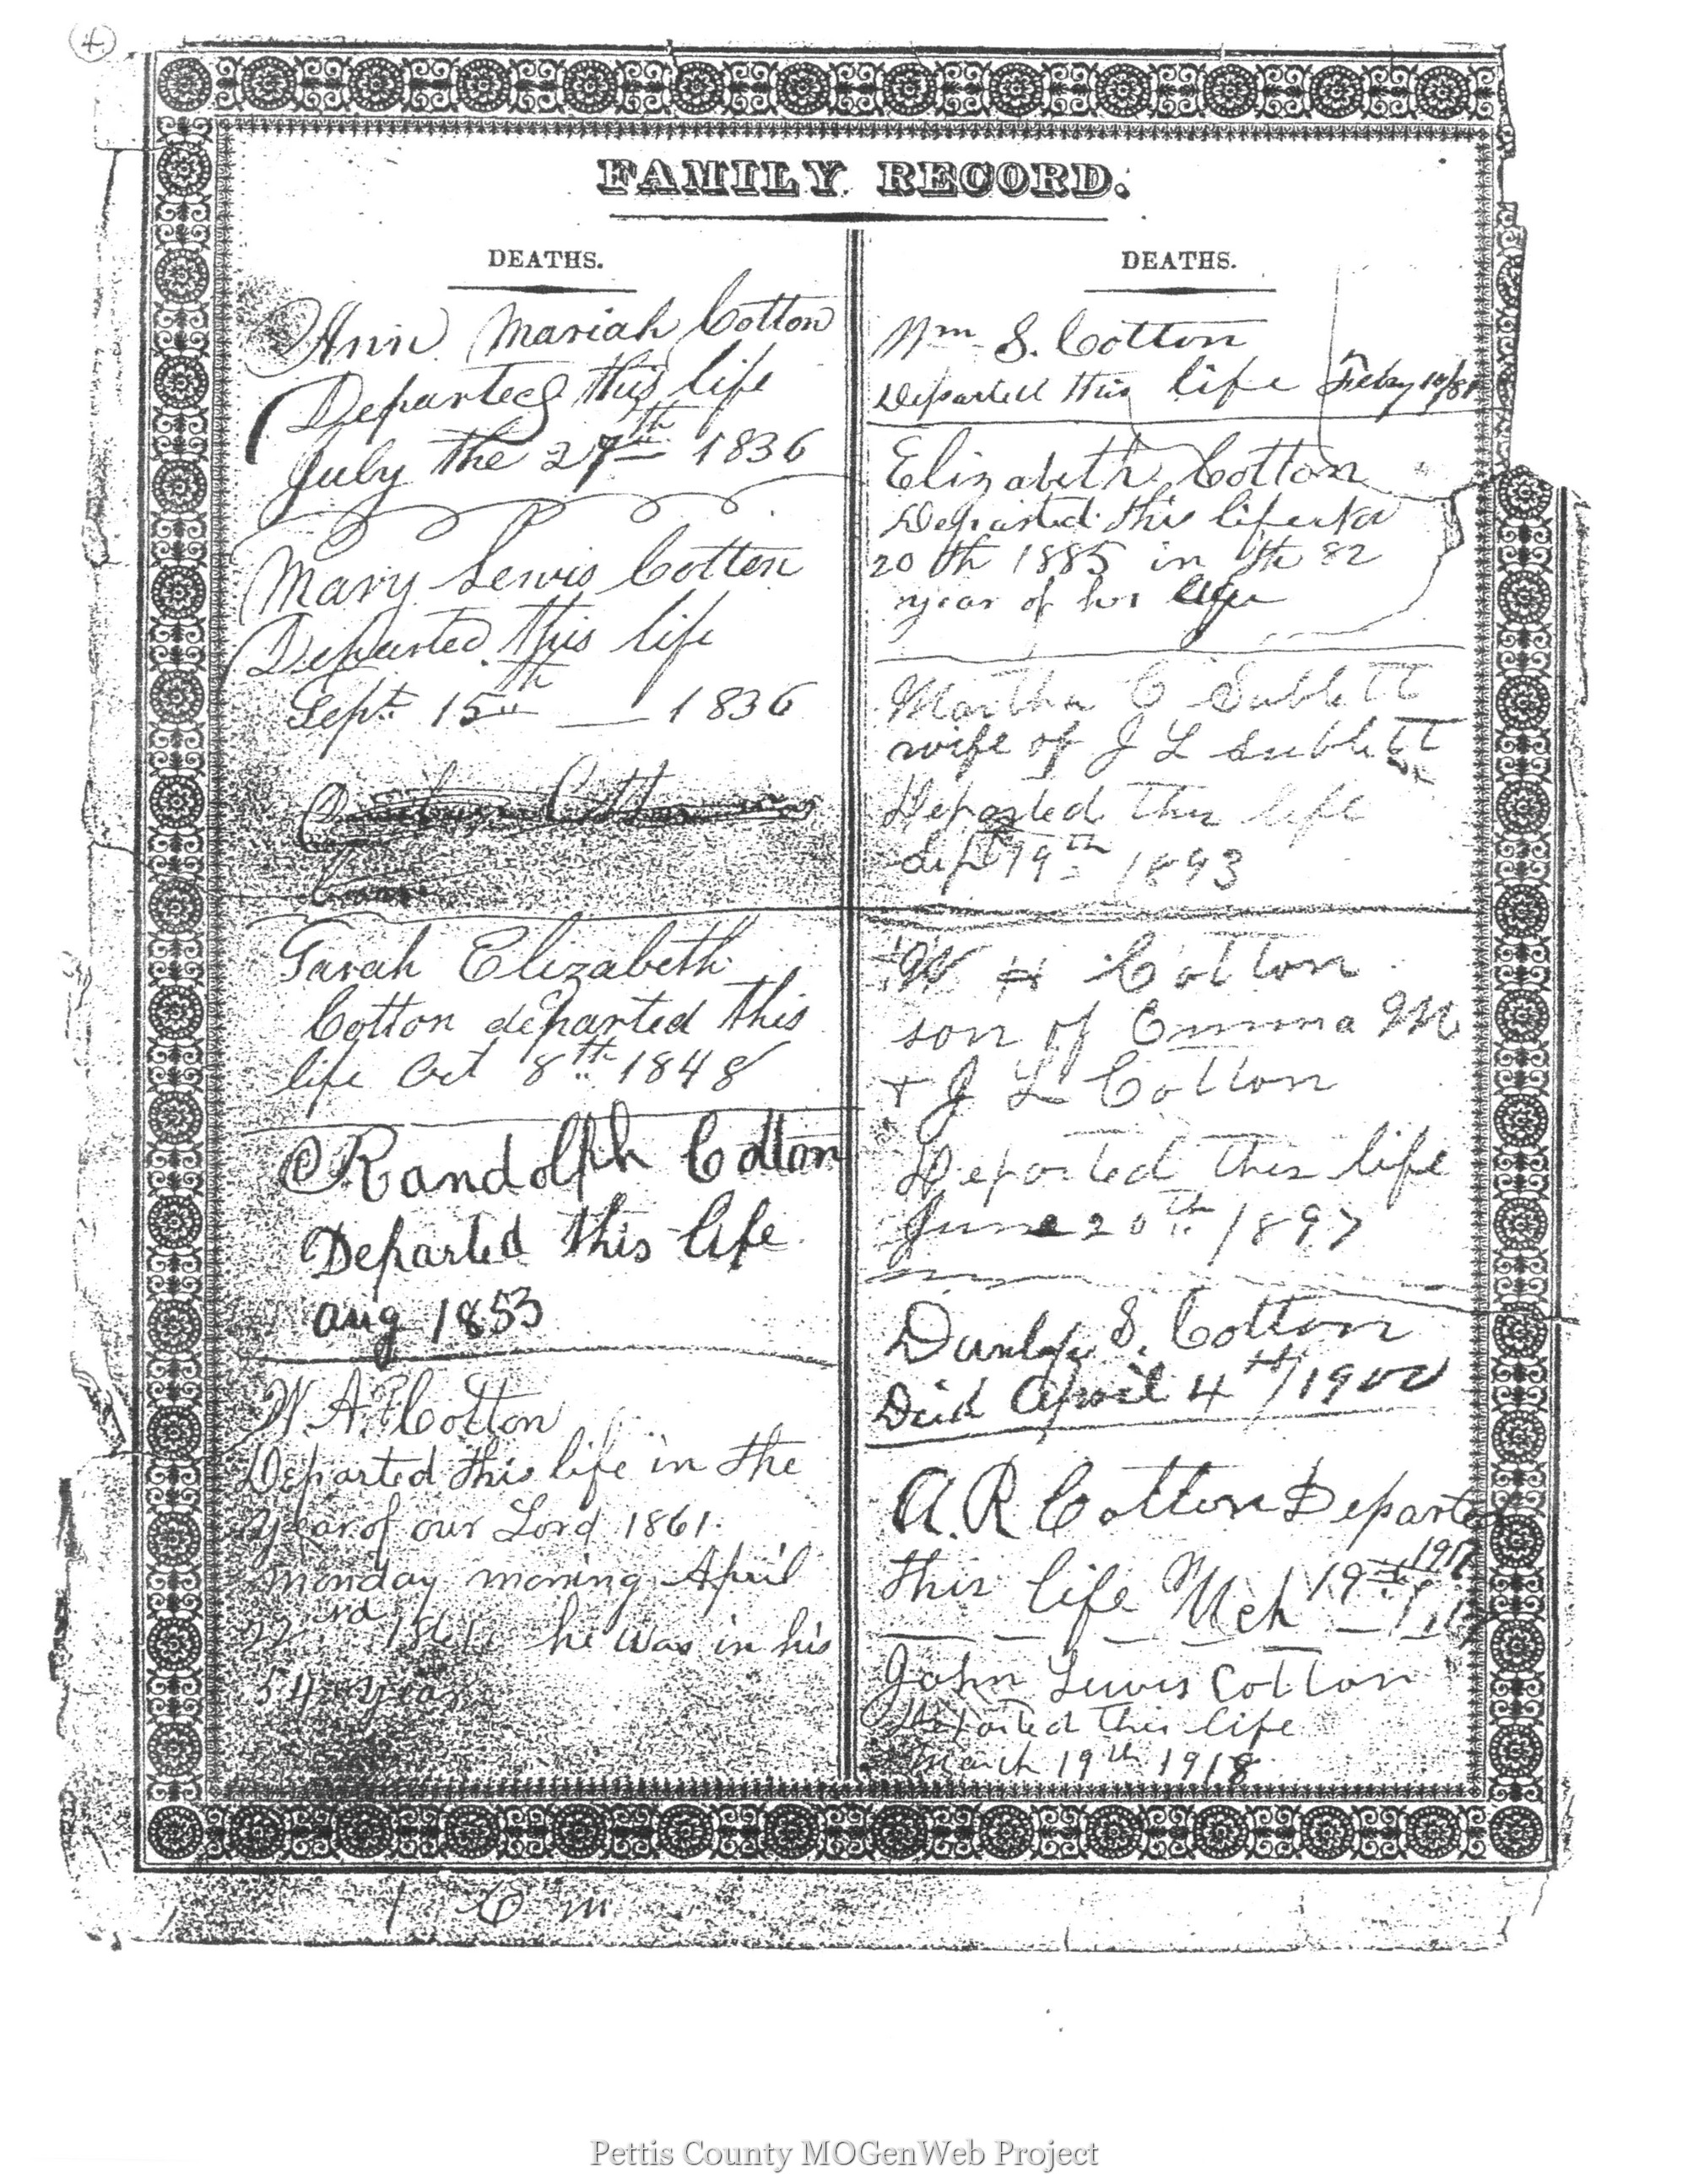 4
FAMILY RECORD.
DEATHS.
Ann Mariah Cotton
Departed this life
July the 27th 1836
Mary Lewis Cotton
Departed this life
Sept. 15th — 1836
Sarah Elizabeth
Cotton departed this
life Oct 8th 1848
Randolph Cotton
Departed this life
aug 1853
W. A. Cotton
Departed this life in the
year of our Lord 1861.
monday morning April
22nd 1861 he was in his
54 year
DEATHS.
Wm S. Cotton
Departed this life Feby
Elizabeth Cotton
Departed this life
20th 1885 in the 82
year of her age
Martha C Sublett
wife of J L Sublett
Departed this life
Sept 19th 1893
W H Cotton
son of Emma M
+ J L Cotton
Departed this life
June 20th 1897
Dunlap S. Cotton
Died April 4th/1900
A. R Cotton Departed
this life Mch 19th
John Lewis Cotton
Departed this life
March 19th 1918
Pettis County MOGenWeb Project